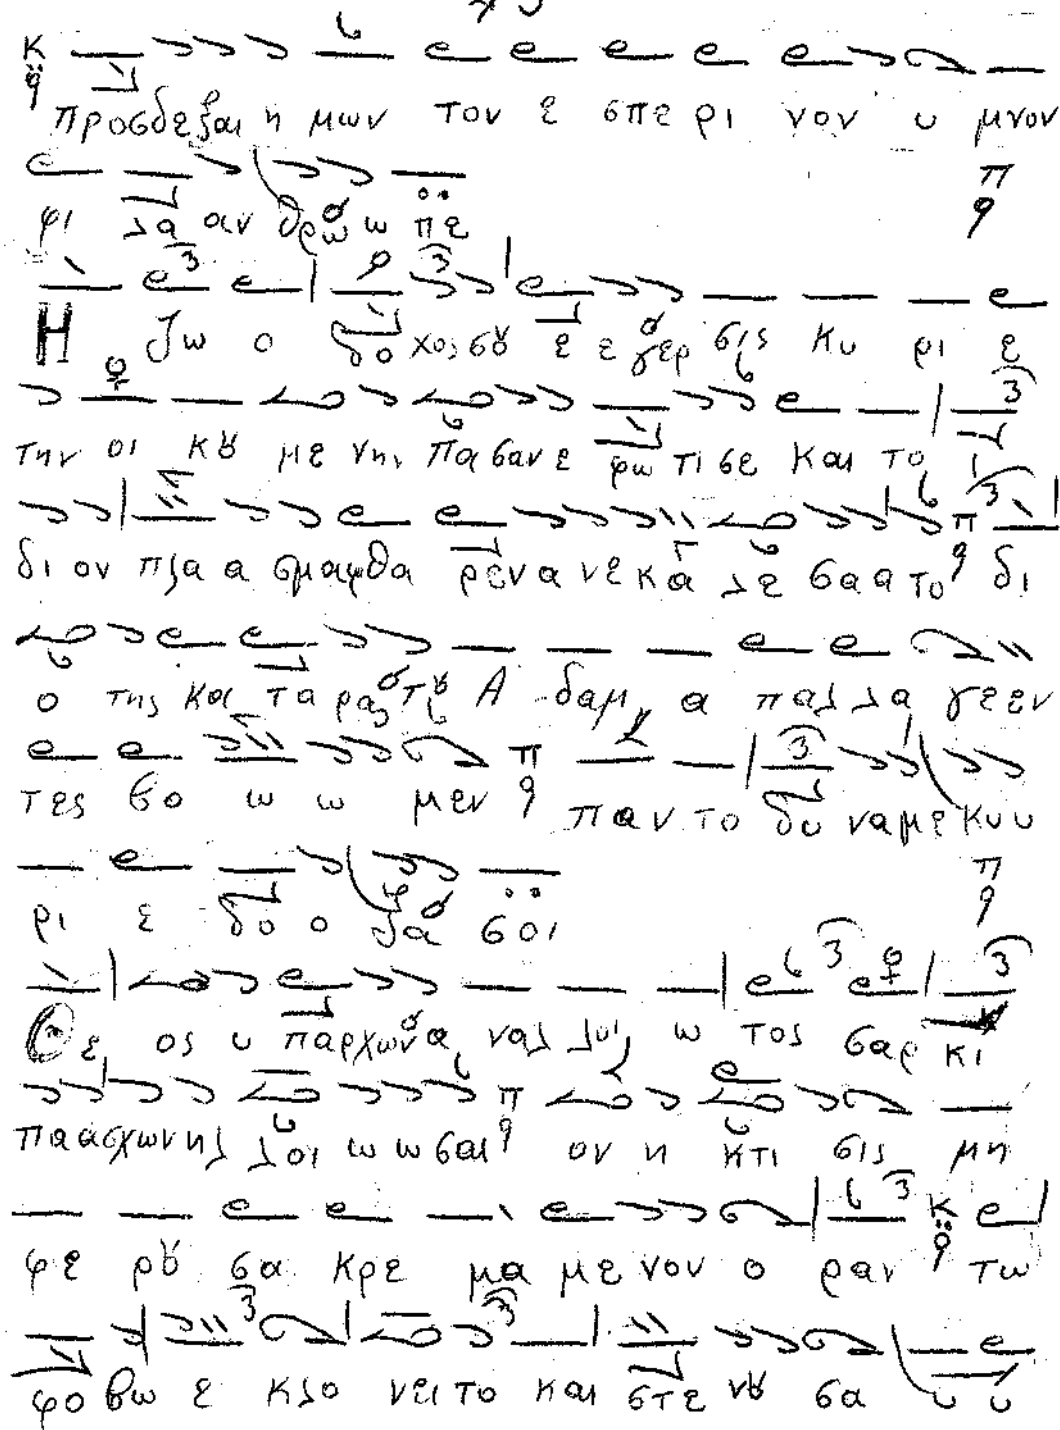 προσδεξαι η μων τον ε σπε ρι νον υ μνον
φι λα αν θρω ω πε
Η ζω ο δο χος σȣ ε ε γερ σις Κυ ρι ε
την οι κȣ με νην πα σαν ε φω τι σε και το ι
δι ον πλα α σμα φθα ρεν α νε κα λε σα α το δι
ο της κα τα ρας τȣ Α δαμ α παλ λα γε εν
τες βο ω ω μεν παν το δυ να με Κυ υ
ρι ε δο ο ξα σοι
Θε ος υ παρχων α ναλ λοι ω τος σαρ κι
πα ασχων ηλ λοι ω ω σαι ον η κτι σις μη
φε ρȣ σα κρε μα με νον ο ραν τω
φο βω ε κλο νει το και στε νȣ σα υ υ